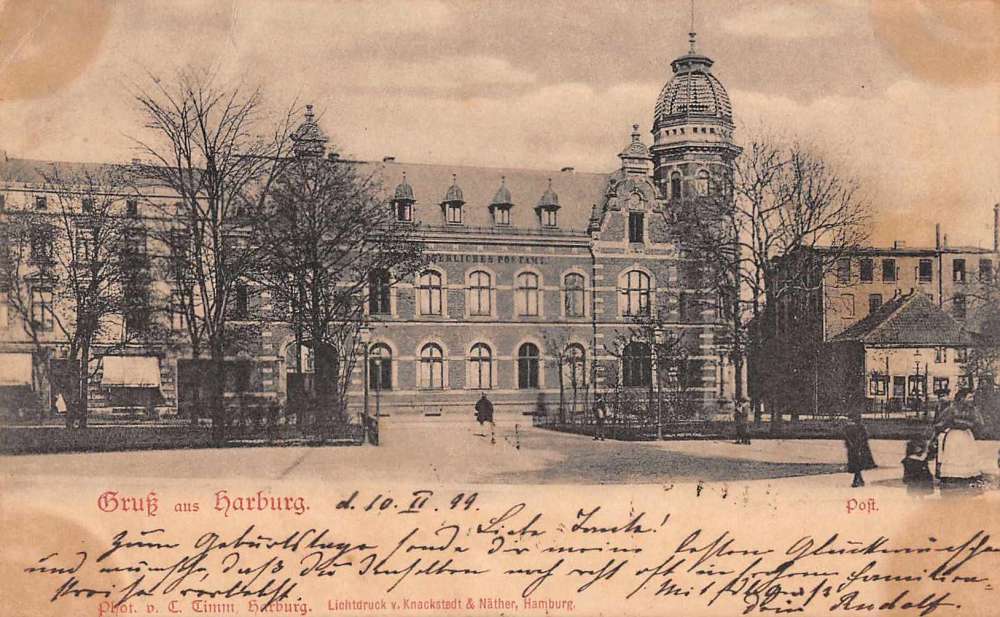 ERLICHES POSTAMT.
Gruß aus Harburg.
d. 10. II. 99.
Post.
Liebe Tante!
Zum Geburtstage sende dir meine besten Glückwünsche
und wünsche daß du denselben noch recht oft in frohem Familien-
kreise verlebst.
Mit süß
dein Rudolf.
Phot. v. C. Timm, Harburg.
Lichtdruck v. Knackstedt & Näther, Hamburg.